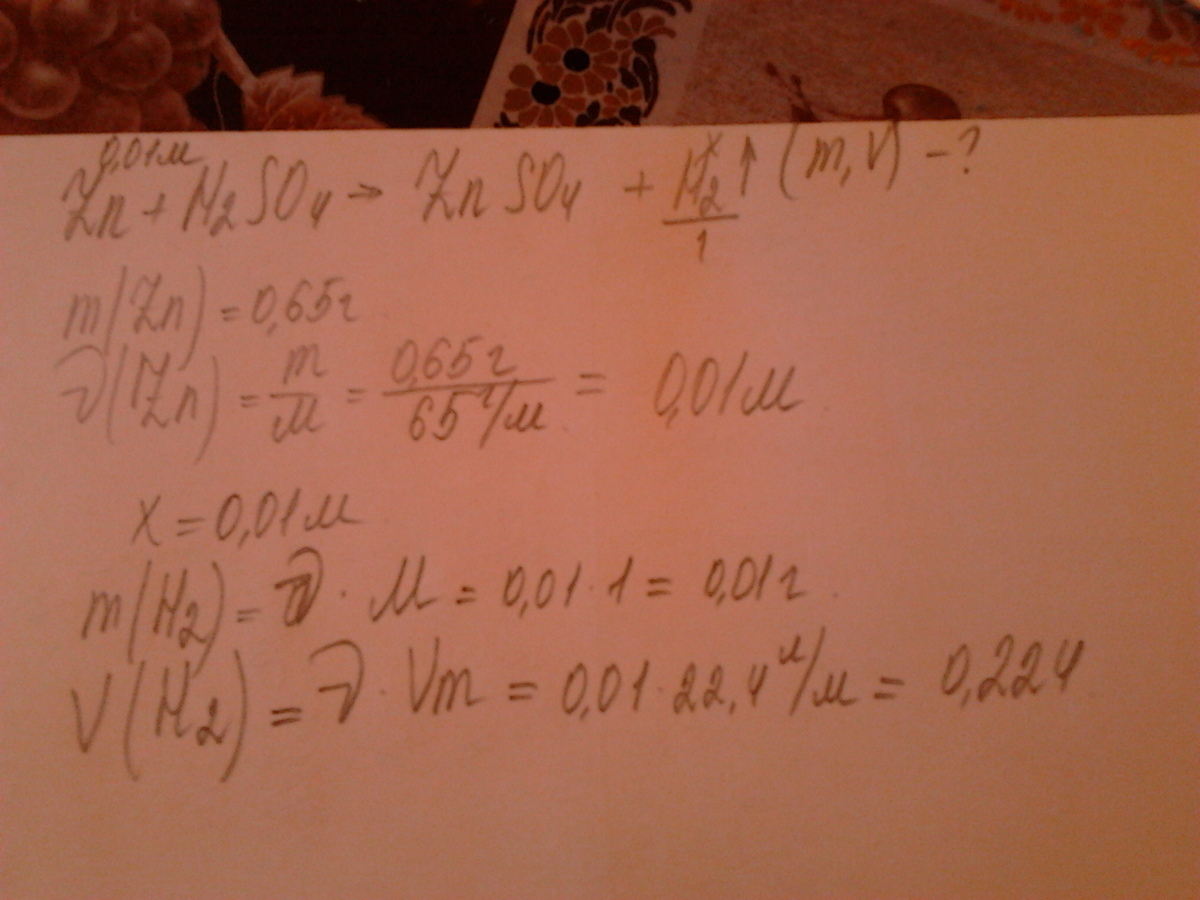 0,01м x
Zn + H2SO4 → ZnSO4 + H2↑ (m,V) - ?
1
m(Zn) = 0,65г
ν(Zn) = m/M = 0,65г/65 г/м = 0,01м
x = 0,01м
m(H2) = ν · M = 0,01 · 1 = 0,01г
V(H2) = ν · Vm = 0,01 · 22,4 л/м = 0,224